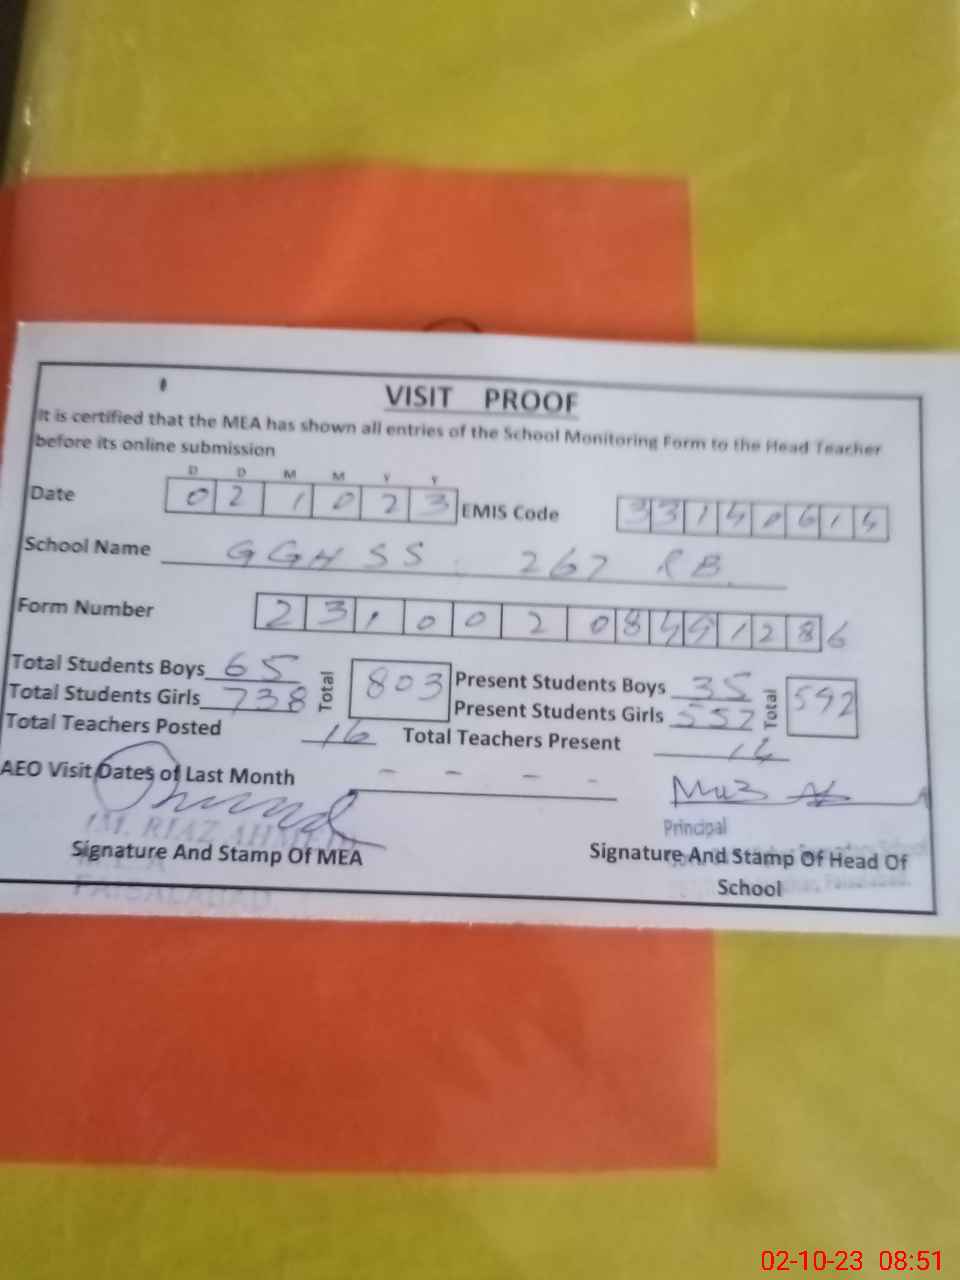 VISIT PROOF
It is certified that the MEA has shown all entries of the School Monitoring Form to the Head Teacher
before its online submission
D D M M Y Y
Date 0 2 1 0 2 3 EMIS Code 3 3 1 4 0 6 1 4
School Name GGHSS 267 RB
Form Number 2 3 1 0 0 2 0 8 4 9 1 2 8 6
Total Students Boys 65 Total 803 Present Students Boys 35 Total 592
Total Students Girls 738 Present Students Girls 557
Total Teachers Posted 16 Total Teachers Present 14
AEO Visit Dates of Last Month - - - -
M. RIAZ AHMED
Principal
Signature And Stamp Of MEA Signature And Stamp Of Head Of
School
FAISALABAD
02-10-23 08:51